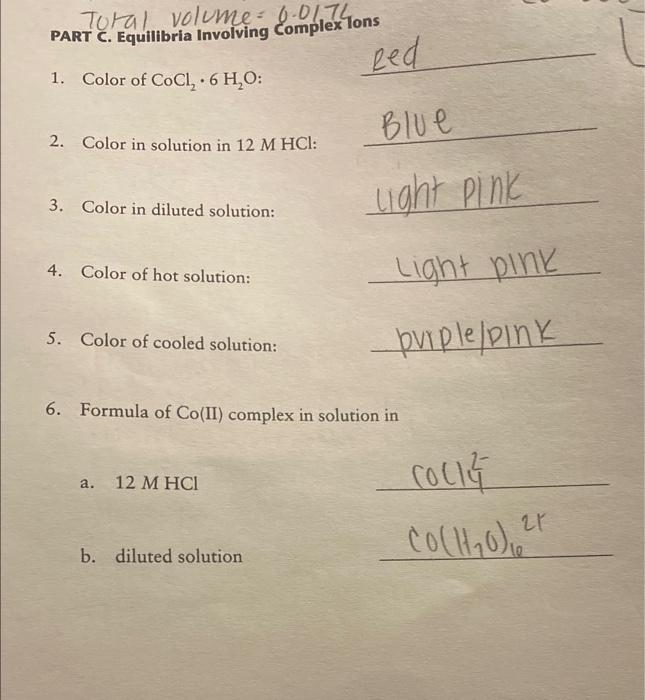 Total volume = 0.0174
PART C. Equilibria Involving Complex Ions
1. Color of CoCl₂ · 6 H₂O: Red
2. Color in solution in 12 M HCl: Blue
3. Color in diluted solution: Light pink
4. Color of hot solution: Light pink
5. Color of cooled solution: purple/pink
6. Formula of Co(II) complex in solution in
a. 12 M HCl CoCl₄²⁻
b. diluted solution Co(H₂O)₆²⁺